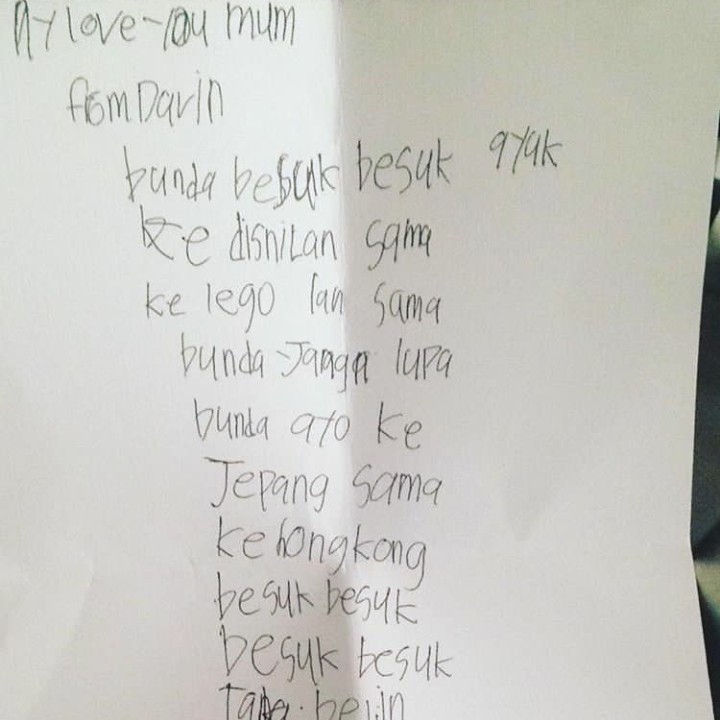 My love-you mum
from Darin
bunda besuk besuk ayak
ke disnilan sama
ke lego lan sama
bunda-Janga lupa
bunda ayo ke
Jepang sama
ke hongkong
besuk besuk
besuk besuk